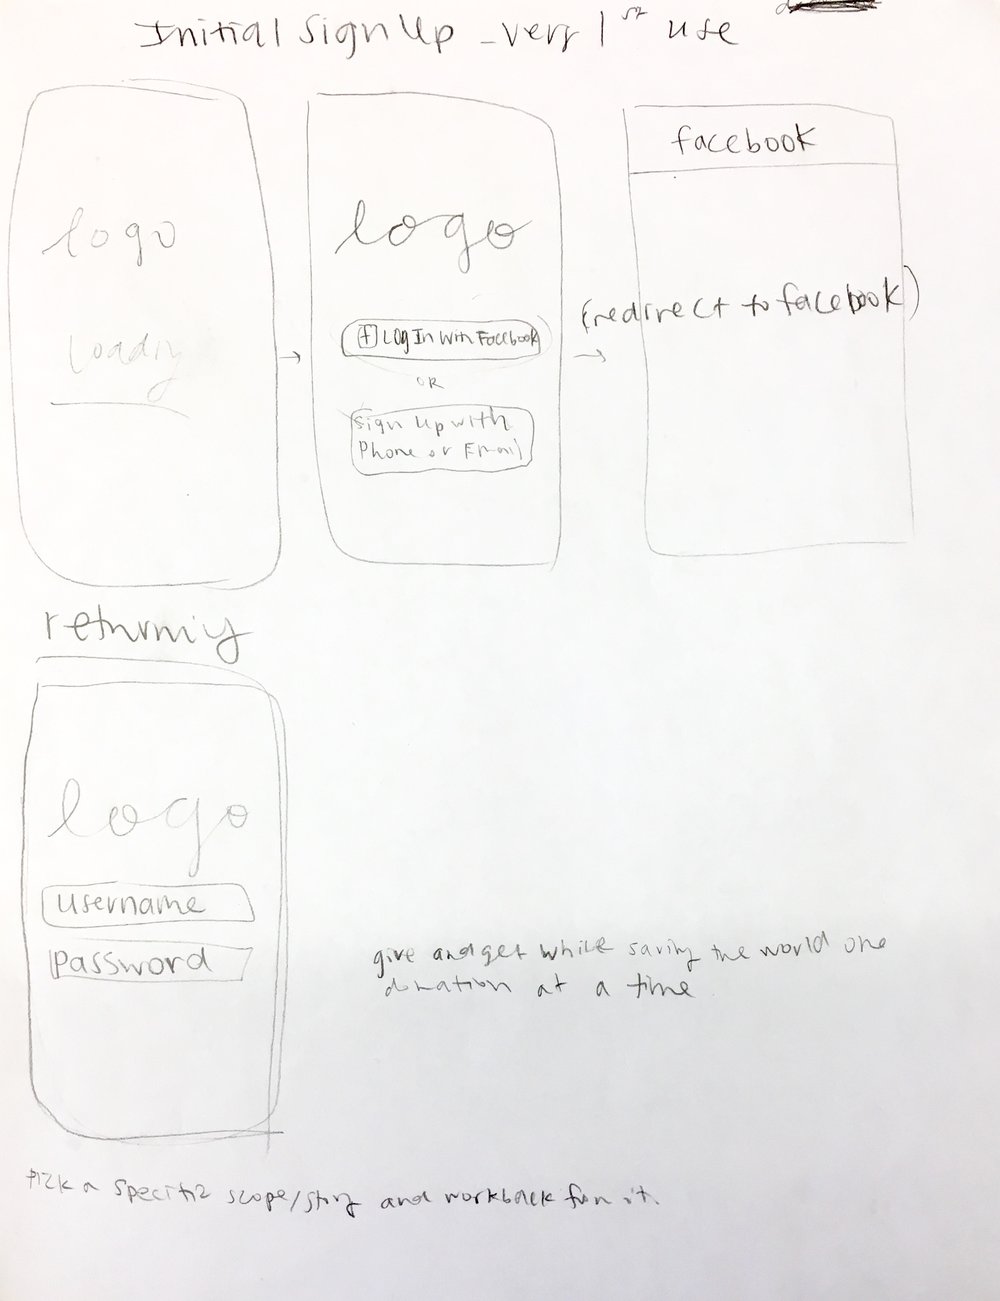 Initial Sign Up - very 1st use
logo
Loading
logo
Log In with Facebook
OR
Sign Up with
Phone or Email
facebook
(redirect to facebook)
returning
logo
username
password
give and get while saving the world one
donation at a time
pick a specific scope/story and work back from it.